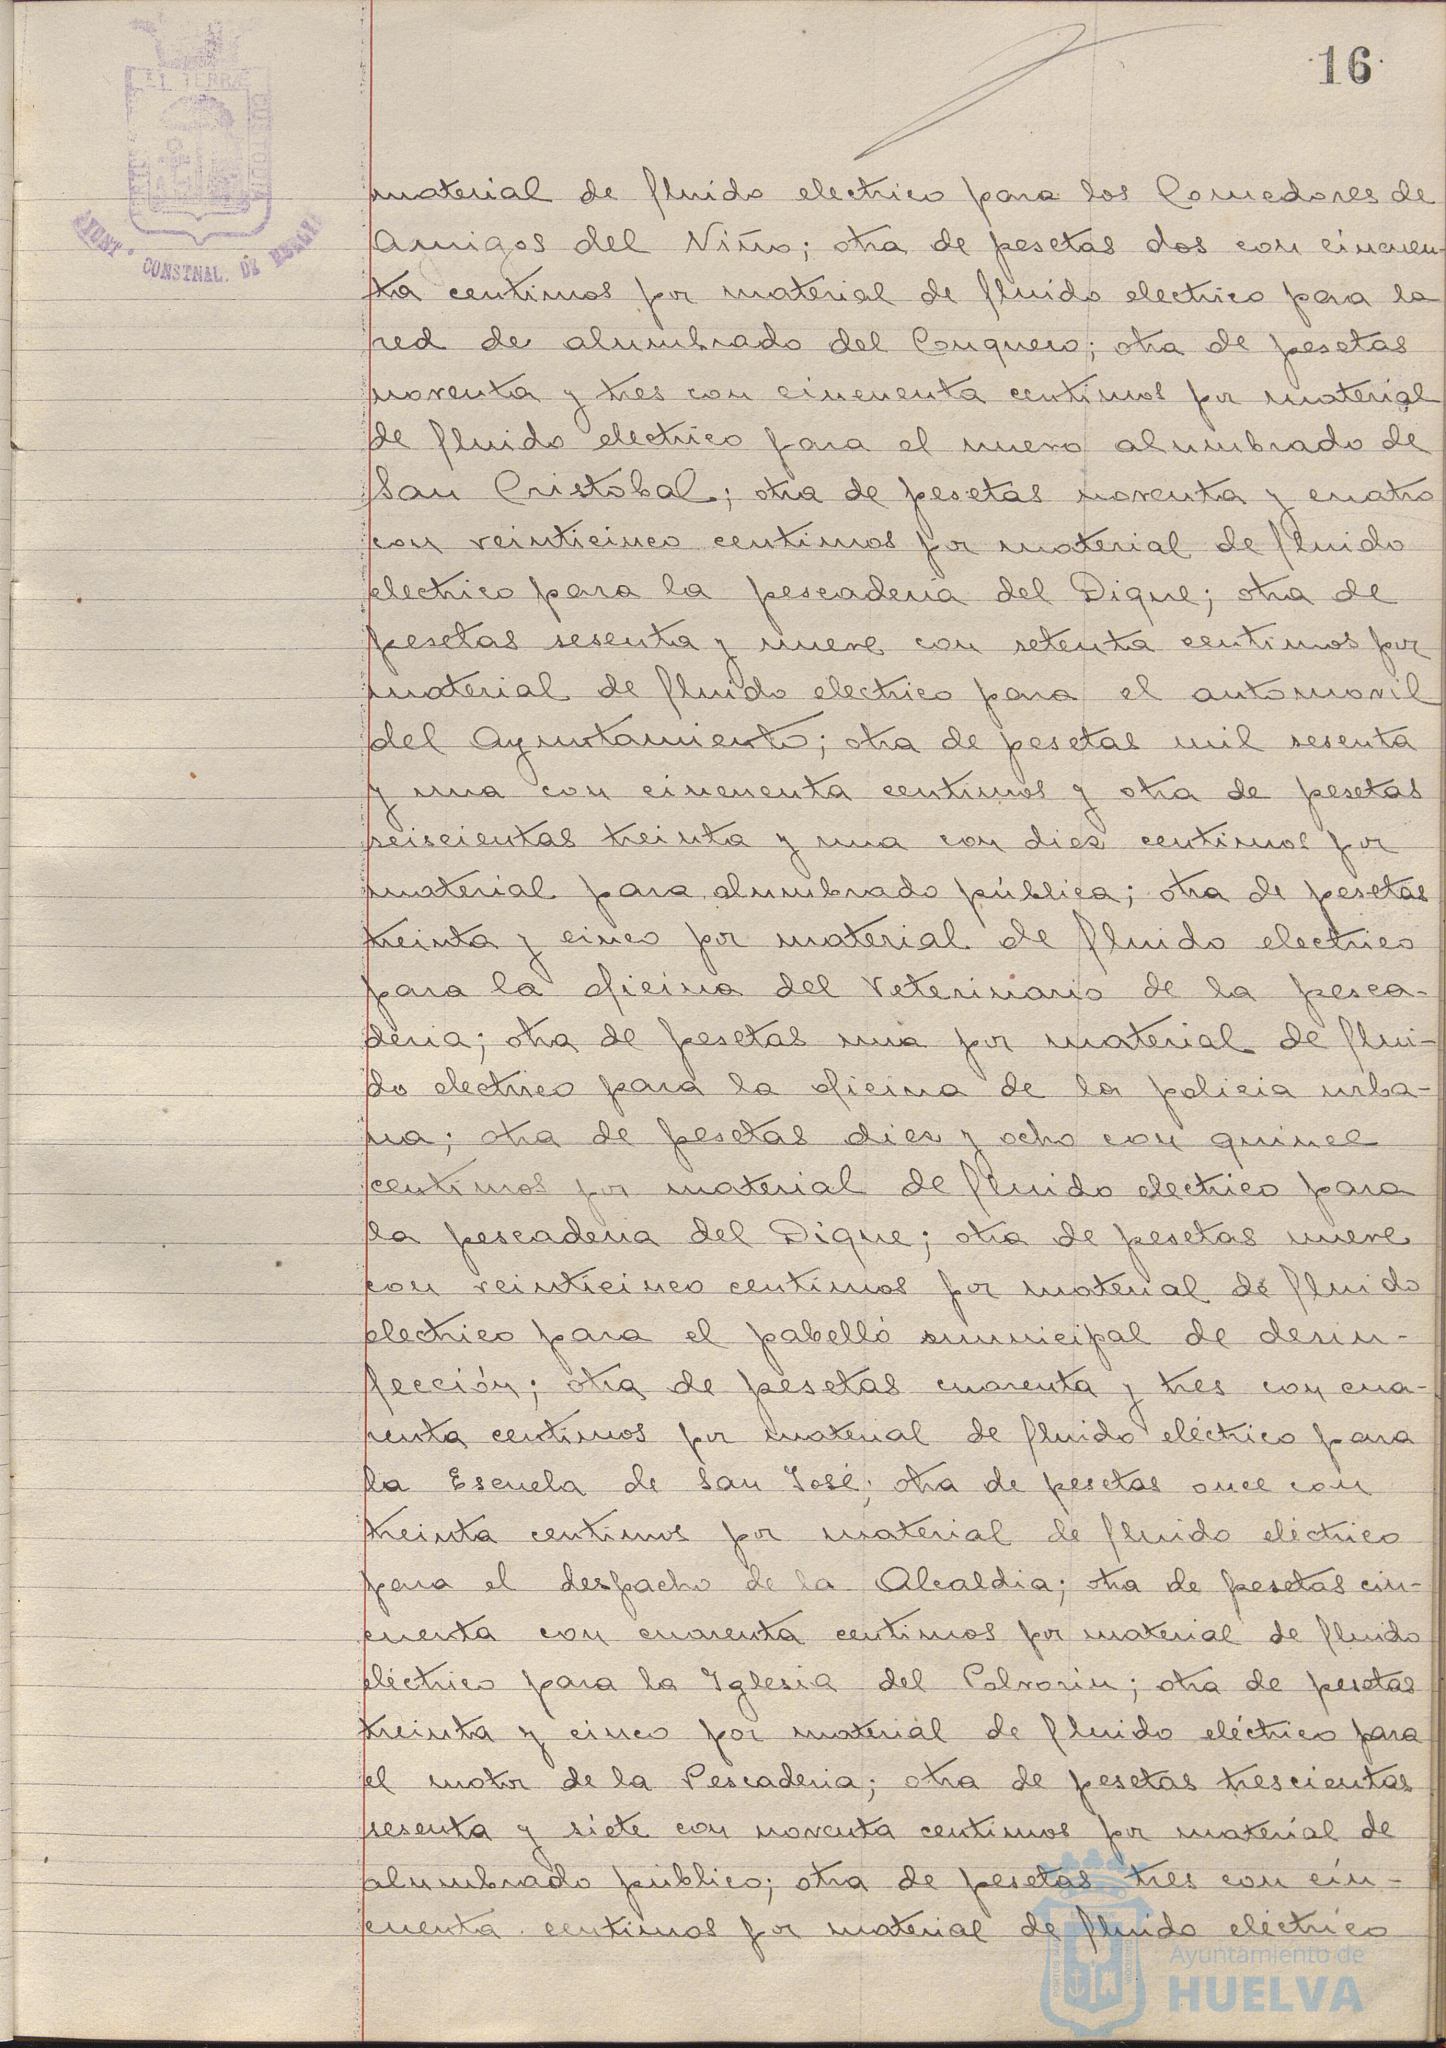 16
AYUNT. CONSTNAL. DE HUELVA
material de fluido electrico para los Comedores de
Amigos del Niño; otra de pesetas dos con cincuen-
ta centimos por material de fluido electrico para la
red de alumbrado del Conquero; otra de pesetas
noventa y tres con cincuenta centimos por material
de fluido electrico para el nuevo alumbrado de
San Cristobal; otra de pesetas noventa y cuatro
con veinticinco centimos por material de fluido
electrico para la pescaderia del Dique; otra de
pesetas sesenta y nueve con setenta centimos por
material de fluido electrico para el automovil
del Ayuntamiento; otra de pesetas mil sesenta
y una con cincuenta centimos y otra de pesetas
seiscientas treinta y una con diez centimos por
material para alumbrado pública; otra de pesetas
treinta y cinco por material de fluido electrico
para la oficina del Veterinario de la pesca-
deria; otra de pesetas una por material de flui-
do electrico para la oficina de la policia urba-
na; otra de pesetas diez y ocho con quince
centimos por material de fluido electrico para
la pescaderia del Dique; otra de pesetas nueve
con veinticinco centimos por material de fluido
electrico para el pabelló municipal de desin-
fección; otra de pesetas cuarenta y tres con cua-
renta centimos por material de fluido eléctrico para
la Escuela de San José; otra de pesetas once con
treinta centimos por material de fluido eléctrico
para el despacho de la Alcaldia; otra de pesetas cin-
cuenta con cuarenta centimos por material de fluido
eléctrico para la Iglesia del Polvorin; otra de pesetas
treinta y cinco por material de fluido eléctrico para
el motor de la Pescaderia; otra de pesetas trescientas
sesenta y siete con noventa centimos por material de
alumbrado público; otra de pesetas tres con cin-
cuenta centimos por material de fluido eléctrico
Ayuntamiento de
HUELVA